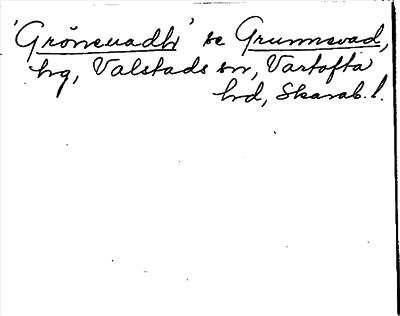 'Gröneuadh' se Grunnevad,
hg, Valstads sn, Vartofta
hd, Skarab. l.